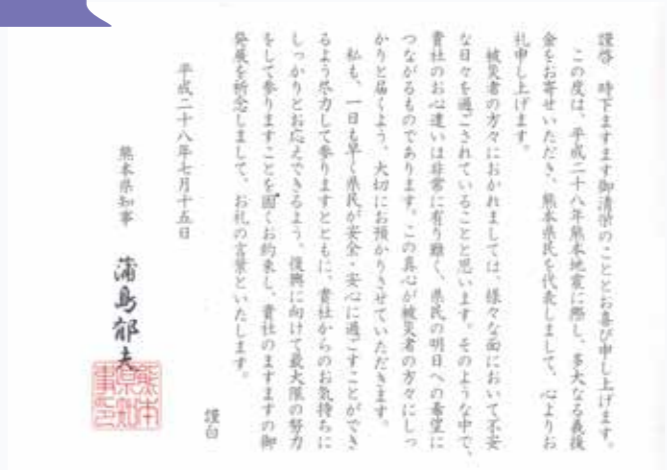 謹啓　時下ますます御清栄のこととお喜び申し上げます。
この度は、平成二十八年熊本地震に際し、多大なる義援
金をお寄せいただき、熊本県民を代表しまして、心よりお
礼申し上げます。
被災者の方々におかれましては、様々な面において不安
な日々を過ごされていることと思います。そのような中で、
貴社のお心遣いは非常に有り難く、県民の明日への希望に
つながるものであります。この真心が被災者の方々にしっ
かりと届くよう、大切にお預かりさせていただきます。
私も、一日も早く県民が安全・安心に過ごすことができ
るよう尽力して参りますとともに、貴社からのお気持ちに
しっかりとお応えできるよう、復興に向けて最大限の努力
をして参りますことを固くお約束し、貴社のますますの御
発展を祈念しまして、お礼の言葉といたします。
謹白
平成二十八年七月十五日
熊本県知事　蒲島郁夫
熊本
県知
事印